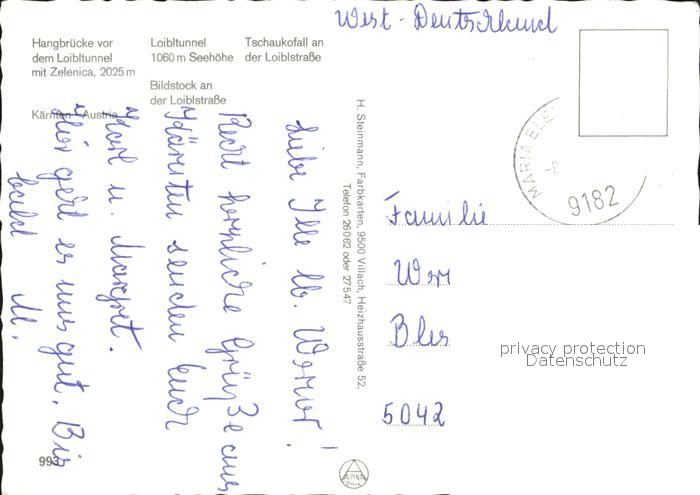 West-Deutschland
Hangbrücke vor
dem Loibltunnel
mit Zelenica, 2025 m
Loibltunnel
1060 m Seehöhe
Tschaukofall an
der Loiblstraße
Bildstock an
der Loiblstraße
Kärnten - Austria
Liebe Ille lb. Werner!
Recht herzliche Grüße aus
Kärnten senden Euch
Karl u. Margret.
Hier geht es uns gut. Bis
bald M.
H. Steinmann, Farbkarten, 9500 Villach, Heizhausstraße 52,
Telefon 26062 oder 27547
MARIA ELE
9182
Familie
Wer
Bles
5042
privacy protection
Datenschutz
993